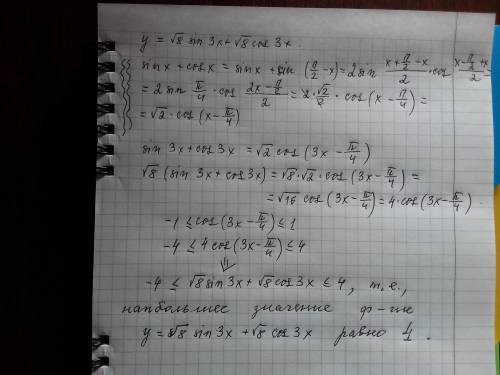 y = √8 sin 3x + √8 cos 3x.
sin x + cos x = sin x + sin (π/2 - x) = 2 sin (x + π/2 - x)/2 · cos (x - π/2 + x)/2
= 2 sin π/4 · cos (2x - π/2)/2 = 2 · √2/2 · cos (x - π/4) =
= √2 · cos (x - π/4)
sin 3x + cos 3x = √2 cos (3x - π/4)
√8 (sin 3x + cos 3x) = √8 · √2 · cos (3x - π/4) =
= √16 cos (3x - π/4) = 4 · cos (3x - π/4).
-1 ≤ cos (3x - π/4) ≤ 1
-4 ≤ 4 cos (3x - π/4) ≤ 4
⇓
-4 ≤ √8 sin 3x + √8 cos 3x ≤ 4, т.е.,
наибольшее значение ф-ции
y = √8 sin 3x + √8 cos 3x равно 4.